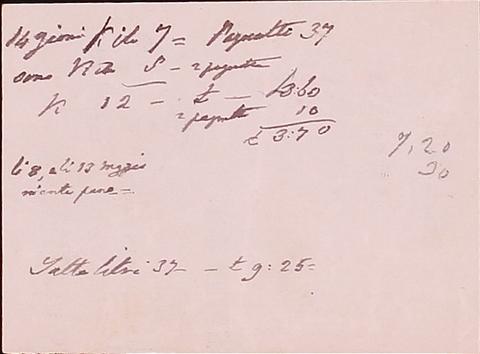 14 gioni Kili 7 = Pagnotte 37
sono Kili 5 - 2 pagnotte
K 12 - £ - 3:60
2 pagnotte 10
£ 3:70
7,20
20
li 8, e li 13 maggio
niente pane =
Latte litri 37 - £ 9:25 =